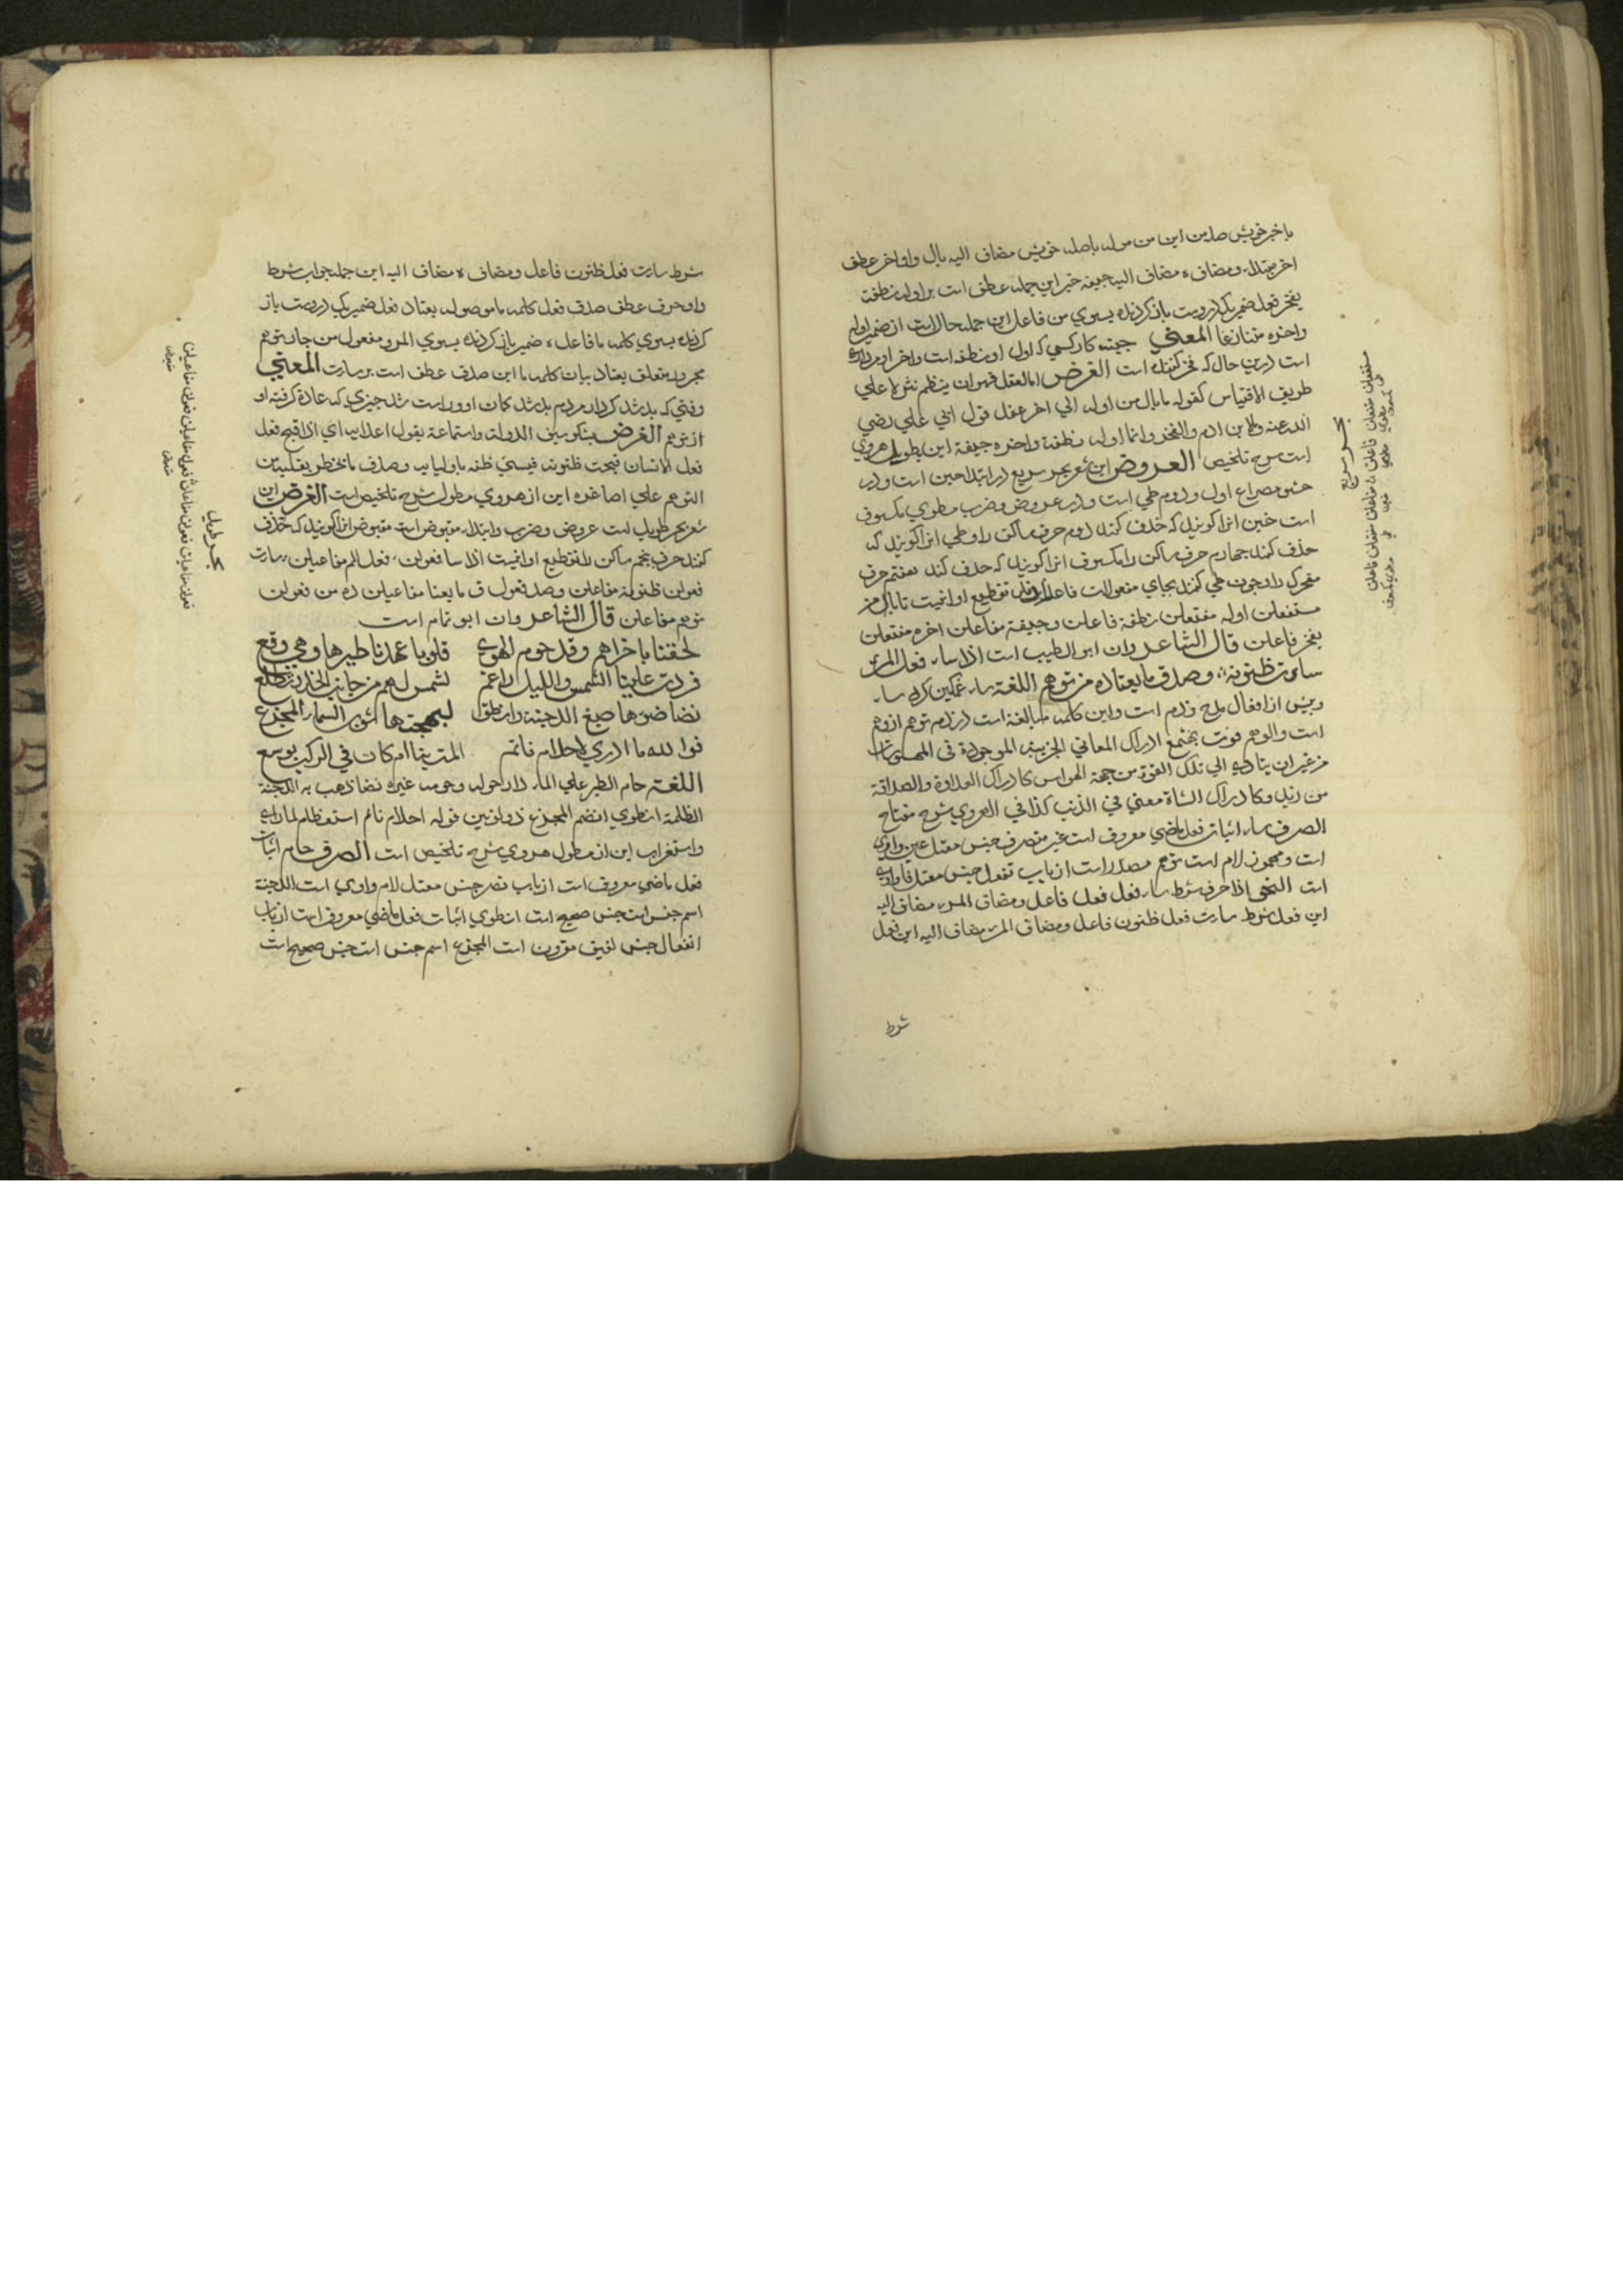 با خبر خویش صله من این من موله باصله خویش مضاف الیه بال واو اخر عطف
اخر مبتدا و مضاف ه مضاف الیه جیفه خبر این جمله عطف است بر اوله نطفة
یفخر فعل ضمیر یکی در ویست باز کردنده بسوی من فاعل این جمله حال است از ضمیر اوله
واخره متنازعا المعنی چیست کار کسی که اول او نطفه است واخر او مردار
است درین حال که فخر کننده است الغرض اما العقد فهو ان ینظم نثر لا علی
طریق الاقتباس کقوله ما بال من اوله الی اخر عقد قول ابی علی رضی
الله عنه وما لابن ادم والفخر وانما اوله نطفة واخره جیفة این مطول هروی
است شرح تلخیص العروض این شعر بحر سریع در ابتدا خبن است و در
حشو مصراع اول و دوم طی است و در عروض و ضرب مطوی مکسوف
است خبن انرا کویند که حذف کنند دوم حرف ساکن را و طی انرا کویند که
حذف کنند چهارم حرف ساکن را مکسوف انرا کویند که حذف کنند هفتم حرف
متحرک را و چون طی کنند بجای مفعولات فاعلن تقطیع او انیست ما بال من
مستفعلن اوله مفتعلن نطفة فاعلن وجیفة مفاعلن اخره مفتعلن
یفخر فاعلن قال الشاعر وان ابو الطیب است اذا ساء فعل المرء
ساءت ظنونه وصدق ما یعتاده من توهم اللغة ساء غمکین کرد ساء
وبئس از افعال مدح وذم است واین کلمه مبالغة است در ذم توهم از وهم
است والوهم قوت ادراک المعانی الجزییة الموجودة فی المحسوسات
من غیر ان یتادی الی تلک القوة من جهة الحواس کادراک العداوة والصداقة
من زید وکادراک الشاة معنی فی الذیب کذا فی الهروی شرح مفتاح
الصرف ساء اثبات فعل ماضی معروف است غیر متصرف جنس معتل عین واوی
است ومهموز لام است توهم مصدر است از باب تفعل جنس معتل فا واوی
است النحو اذا حرف شرط ساء فعل فعل فاعل ومضاف المرء مضاف الیه
این فعل شرط ساءت فعل ظنون فاعل ومضاف المرء مضاف الیه این فعل
شرط
بحر سریع
شرط ساءت فعل ظنون فاعل ومضاف ه مضاف الیه این جمله جواب شرط
واو حرف عطف صدق فعل کلمه ما موصوله یعتاد فعل ضمیر یکی درویست باز
کردنده بسوی کلمه ما فاعل ه ضمیر باز کردنده بسوی المرء ومفعول من جار توهم
مجرور متعلق یعتاد بیان کلمه ما این صدق عطف است بر ساءت المعنی
وقتی که بد شد کردار مردم بد شد کمان او وراست شد چیزی که عادة کرفته او
از توهم الغرض سیف الدولة واستماعة بقول اعدایه ای اذا قبح فعل
فعل الانسان قبحت ظنونه فیسیء ظنه باولیایه وصدق ما یخطر بقلبه من
التوهم علی اصاغره این از هروی مطول شرح تلخیص است الغرض این
شعر بحر طویل است عروض وضرب وابتدا مقبوض است مقبوض انرا کویند که حذف
کنند حرف پنجم ساکن را تقطیع او انیست اذا سا فعولن ء فعل المر مفاعیلن ء ساءت
فعولن ظنونه مفاعلن وصد فعول ق ما یعتا مفاعیلن ده من فعولن
توهم مفاعلن قال الشاعر وان ابو تمام است
لحقنا باخراهم وقد حوم الهوی قلوبا عهدنا طیرها وهی وقع
فردت علینا الشمس واللیل راغم لشمس لهم من جانب الخدر تطلع
نضا ضوءها صبغ الدجنة وانطوی لبهجتها ثوب السماء المجزع
فوا لله ما ادری ءاحلام نائم المت بنا ام کان فی الرکب یوشع
اللغة حام الطیر علی الماء دار حوله وحومه غیره نضا ذهب به الدجنة
الظلمة انطوی انضم المجزع ذو لونین قوله احلام نائم استعظام لما رای
واستغراب این از مطول هروی شرح تلخیص است الصرف حام اثبات
فعل ماضی معروف است از باب نصر جنس معتل لام واوی است الدجنة
اسم جنس است جنس صحیح است انطوی اثبات فعل ماضی معروف است از باب
انفعال جنس لفیف مقرون است المجزع اسم جنس است جنس صحیح است
بحر طویل
فعولن مفاعیلن فعولن مفاعیلن فعولن مفاعیلن فعولن مفاعیلن